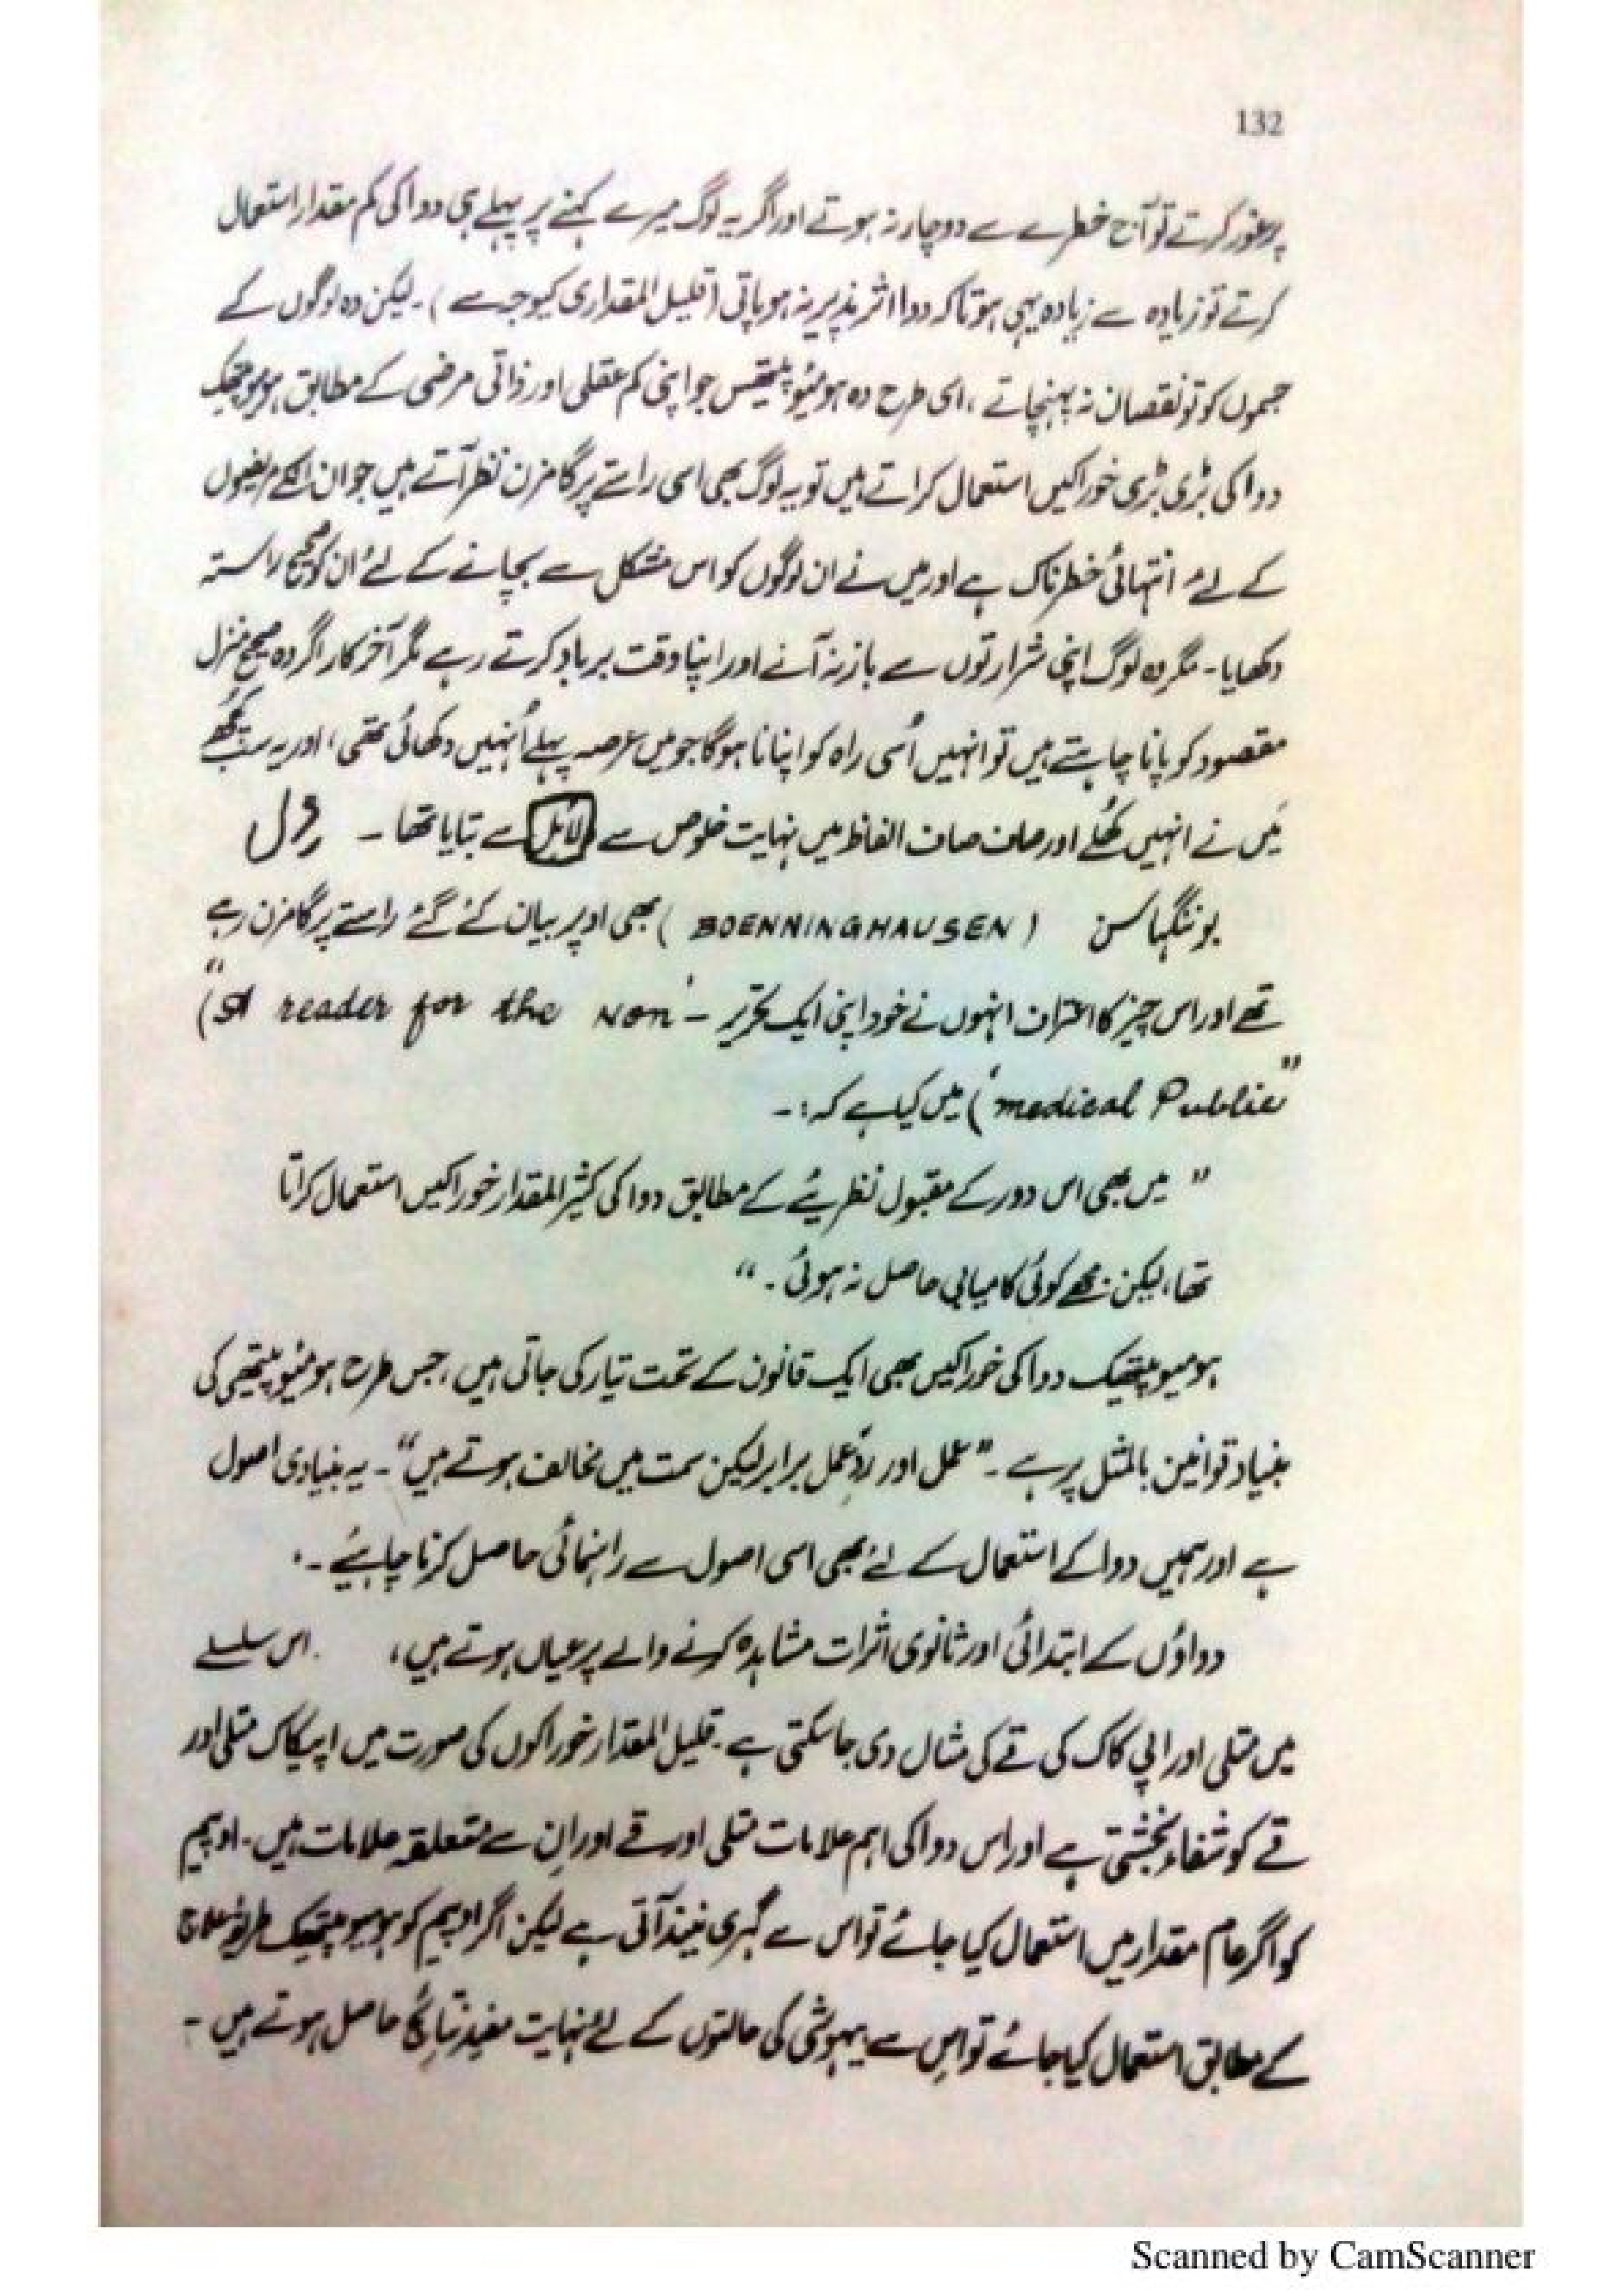 132
پر غور کرتے تو آج خطرے سے دوچار نہ ہوتے اور اگر یہ لوگ میرے کہنے پر پہلے ہی دوا کی کم مقدار استعمال
کرتے تو زیادہ سے زیادہ یہی ہوتا کہ دوا اثر پذیر نہ ہو پاتی (قلیل المقداری کیوجہ سے)۔ لیکن وہ لوگوں کے
جسموں کو تو نقصان نہ پہنچاتے، اسی طرح وہ ہومیوپیتھس جو اپنی کم عقلی اور ذاتی مرضی کے مطابق ہومیوپیتھک
دوا کی بڑی بڑی خوراکیں استعمال کراتے ہیں تو یہ لوگ بھی اسی راستے پر گامزن نظر آتے ہیں جو ان کے مریضوں
کے لئے انتہائی خطرناک ہے اور میں نے ان لوگوں کو اس مشکل سے بچانے کے لئے ان کو صحیح راستہ
دکھایا۔ مگر وہ لوگ اپنی شرارتوں سے باز نہ آئے اور اپنا وقت برباد کرتے رہے مگر آخر کار اگر وہ صحیح منزل
مقصود کو پانا چاہتے ہیں تو انہیں اُسی راہ کو اپنانا ہوگا جو میں عرصہ پہلے اُنہیں دکھائی تھی، اور یہ سب کُچھ
میں نے انہیں کُھلے اور صاف صاف الفاظ میں نہایت خلوص سے سے بتایا تھا۔
بوننگہاسن (BOENNINGHAUSEN) بھی اوپر بیان کئے گئے راستے پر گامزن رہے
تھے اور اس چیز کا اعتراف انہوں نے خود اپنی ایک تحریر - reader for the Non
medical Public") میں کیا ہے کہ :-
" میں بھی اس دور کے مقبول نظریئے کے مطابق دوا کی کثیر المقدار خوراکیں استعمال کراتا
تھا، لیکن مجھے کوئی کامیابی حاصل نہ ہوئی۔ "
ہومیوپیتھک دوا کی خوراکیں بھی ایک قانون کے تحت تیار کی جاتی ہیں، جس طرح ہومیوپیتھی کی
بنیاد قوانین بالمثل پر ہے ۔ "عمل اور ردِّ عمل برابر لیکن سمت میں مخالف ہوتے ہیں"۔ یہ بنیادی اصول
ہے اور ہمیں دوا کے استعمال کے لئے بھی اسی اصول سے راہنمائی حاصل کرنا چاہیئے ۔
دواؤں کے ابتدائی اور ثانوی اثرات مشاہدہ کرنے والے پر عیاں ہوتے ہیں، اس سلسلے
میں متلی اور اپی کاک کی قے کی مثال دی جاسکتی ہے۔ قلیل المقدار خوراکوں کی صورت میں اپیکاک متلی اور
قے کو شفاء بخشتی ہے اور اس دوا کی اہم علامات متلی اور قے اور ان سے متعلقہ علامات ہیں۔ اوپیم
کو اگر عام مقدار میں استعمال کیا جائے تو اس سے گہری نیند آتی ہے لیکن اگر اوپیم کو ہومیوپیتھک طریقہ علاج
کے مطابق استعمال کیا جائے تو اس سے بیہوشی کی حالتوں کے لئے نہایت مفید نتائج حاصل ہوتے ہیں ۔
Scanned by CamScanner